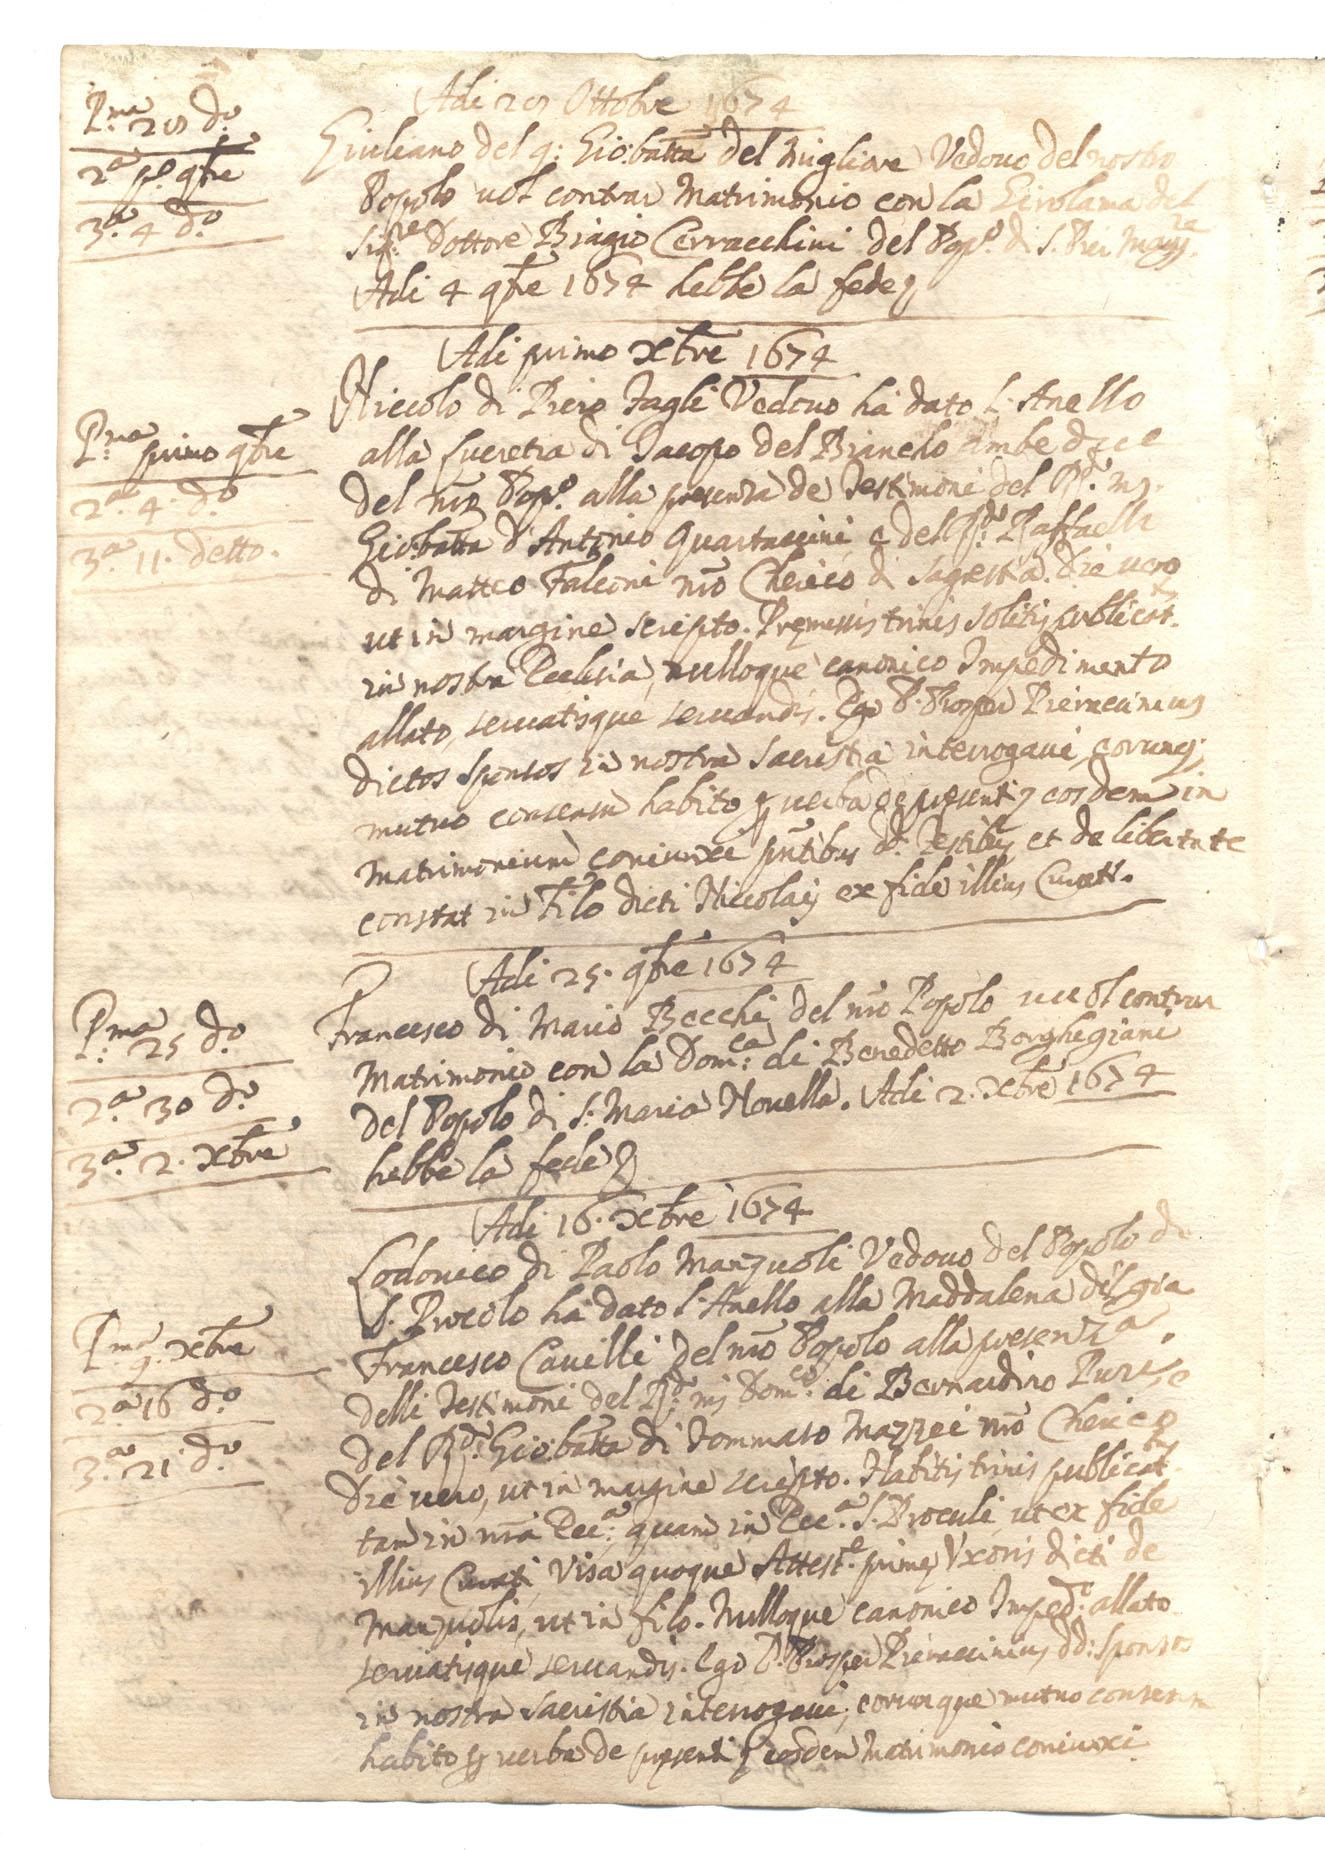 Adi 28 Ottobre 1674
P.ma 28 d.o
2.a p.o 9bre
3.a 4 d.o
Giuliano del q: Gio:batta del Migliore Vedouo del nostro
Popolo uol contrar Matrimonio con la Girolama del
Sig.re Dottore Biagio Cerracchini del Pop.o di S. Pier Magg.re
Adi 4 9bre 1674 hebbe la fede
Adi primo Xbre 1674
P.ma primo 9bre
2.a 4. d.o
3.a 11. detto.
Niccolo di Piero Tagli Vedouo ha dato l'Anello
alla Lucretia di Jacopo del Biancho ambedue
del nro Pop.o alla presenza de Testimoni del R.do m.
Gio:batta d'Antonio Quartaccini, e del R.do Raffaello
di Matteo Falconi nro Cherico di Sagrestia. Die uero
ut in margine scripto. Premissis trinis solitis publicat.
in nostra Ecclesia, nulloque canonico Impedimento
allato, seruatisque seruandis. Ego P. Prosper Pieraccinius
dictos sponsos in nostra Sacristia interrogaui, eorumq;
mutuo consensu habito p uerba de presenti eosdem in
Matrimonium coniunxi pntibus dd. Testibus et de libertate
constat in Filo dicti Niccolaij ex fide illius Curati.
Adi 25. 9bre 1674
P.ma 25 d.o
2.a 30 d.o
3.a 2. Xbre
Francesco di Mario Becchi del nro Popolo uuol contrar
Matrimonio con la Dom.ca di Benedetto Borghegiani
del Popolo di S. Maria Nouella. Adi 2. Xbre 1674
hebbe la fede
Adi 16. Xbre 1674
P.ma 9. Xbre
2.a 16 d.o
3.a 21. d.o
Lodouico di Paolo Manzuoli Vedouo del Popolo di
S. Procolo ha dato l'Anello alla Maddalena di Gio:
Francesco Cauilli del nro Popolo alla presenza
delli Testimoni del R.do m. Dom.co di Bernardino
del R.do Gio:batta di Tommaso Mazzei nro Cherico
Die uero, ut in margine scripto. Habitis trinis publicat.
tam in nra Ecc.a quam in Ecc.a S. Proculi, ut ex fide
illius Curati, Visa quoque Attest.e prime Vxoris dicti de
Manzuolis, ut in filo. Nulloque canonico Imped.o allato
seruatisque seruandis. Ego P. Prosper Pieraccinius dd: sponsos
in nostra Sacristia interrogaui, eorumque mutuo consensu
habito p uerba de presenti eosdem Matrimonio coniunxi